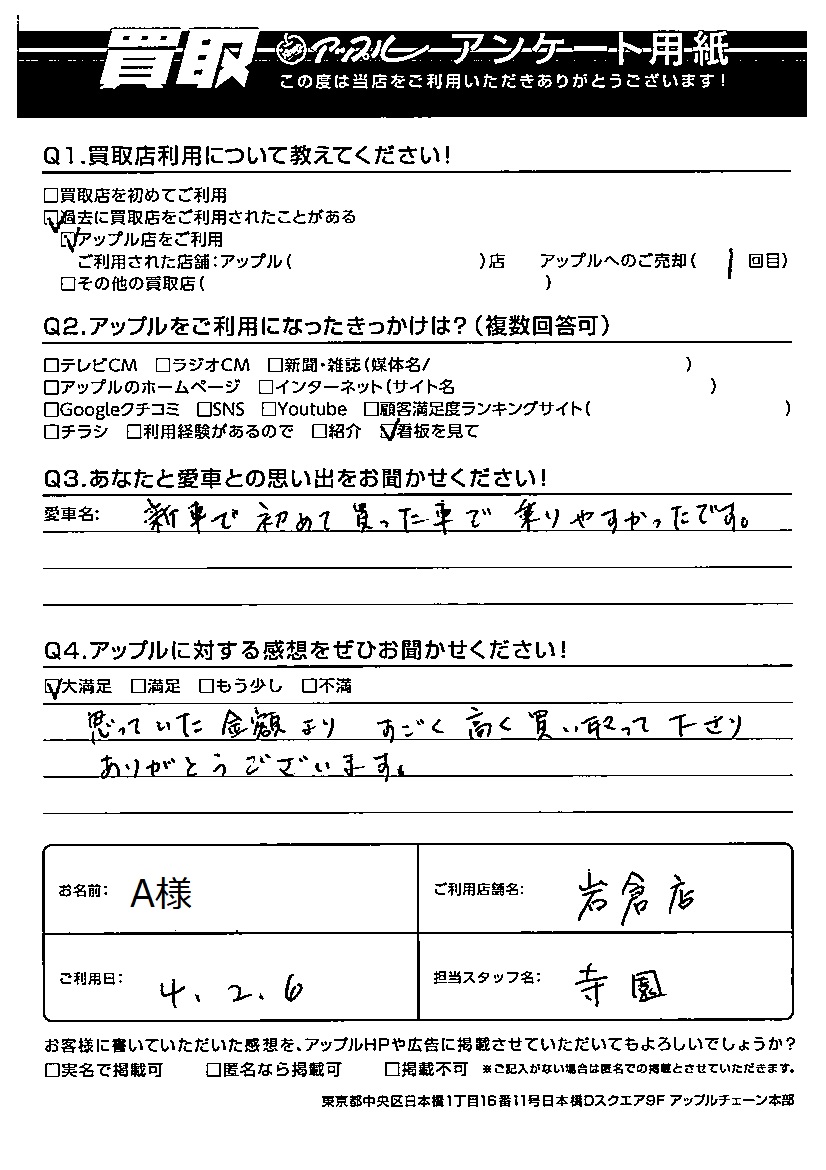 買取 アップル アンケート用紙
この度は当店をご利用いただきありがとうございます!
Q1.買取店利用について教えてください!
□買取店を初めてご利用
☑過去に買取店をご利用されたことがある
☑アップル店をご利用
ご利用された店舗:アップル( )店 アップルへのご売却( 1 回目)
□その他の買取店( )
Q2.アップルをご利用になったきっかけは?(複数回答可)
□テレビCM □ラジオCM □新聞・雑誌(媒体名/ )
□アップルのホームページ □インターネット(サイト名 )
□Googleクチコミ □SNS □Youtube □顧客満足度ランキングサイト( )
□チラシ □利用経験があるので □紹介 ☑看板を見て
Q3.あなたと愛車との思い出をお聞かせください!
愛車名: 新車で初めて買った車で乗りやすかったです。
Q4.アップルに対する感想をぜひお聞かせください!
☑大満足 □満足 □もう少し □不満
思っていた金額より すごく高く買い取って下さり
ありがとうございます。
お名前: A様 ご利用店舗名: 岩倉店
ご利用日: 4.2.6 担当スタッフ名: 寺園
お客様に書いていただいた感想を、アップルHPや広告に掲載させていただいてもよろしいでしょうか?
□実名で掲載可 □匿名なら掲載可 □掲載不可 ※ご記入がない場合は匿名での掲載とさせていただきます。
東京都中央区日本橋1丁目16番11号日本橋Dスクエア9F アップルチェーン本部